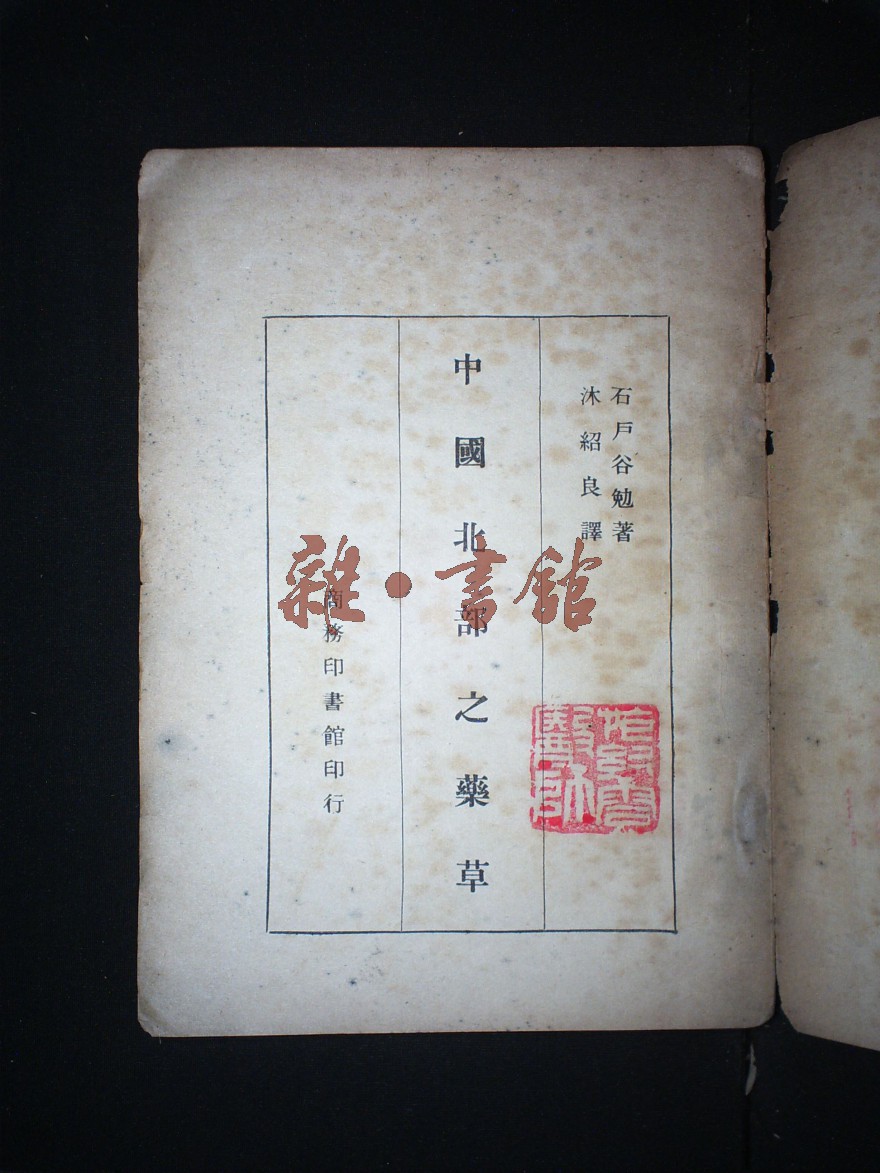 石戶谷勉著
沐紹良譯
中國北部之藥草
商務印書館印行
雜·書館